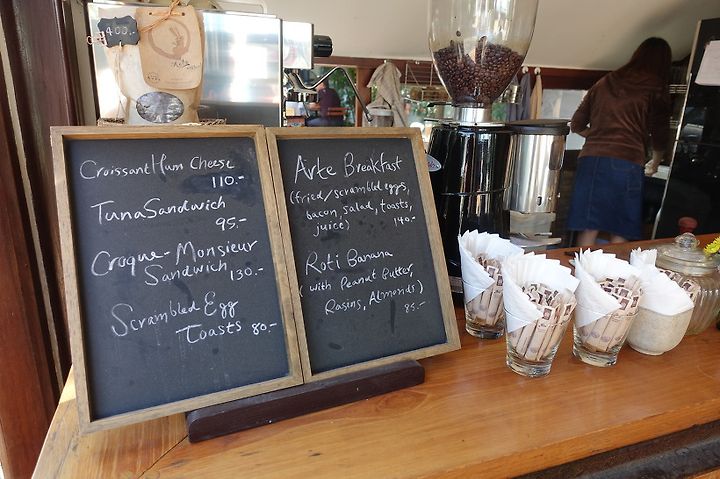 400.-
Croissant Ham Cheese
110.-
Tuna Sandwich
95.-
Croque-Monsieur
Sandwich 130.-
Scrambled Egg
Toasts 80.-
Arte Breakfast
(fried/scrambled eggs,
bacon, salad, toasts,
juice) 140.-
Roti Banana
(with Peanut Butter,
Rasins, Almonds) 85.-